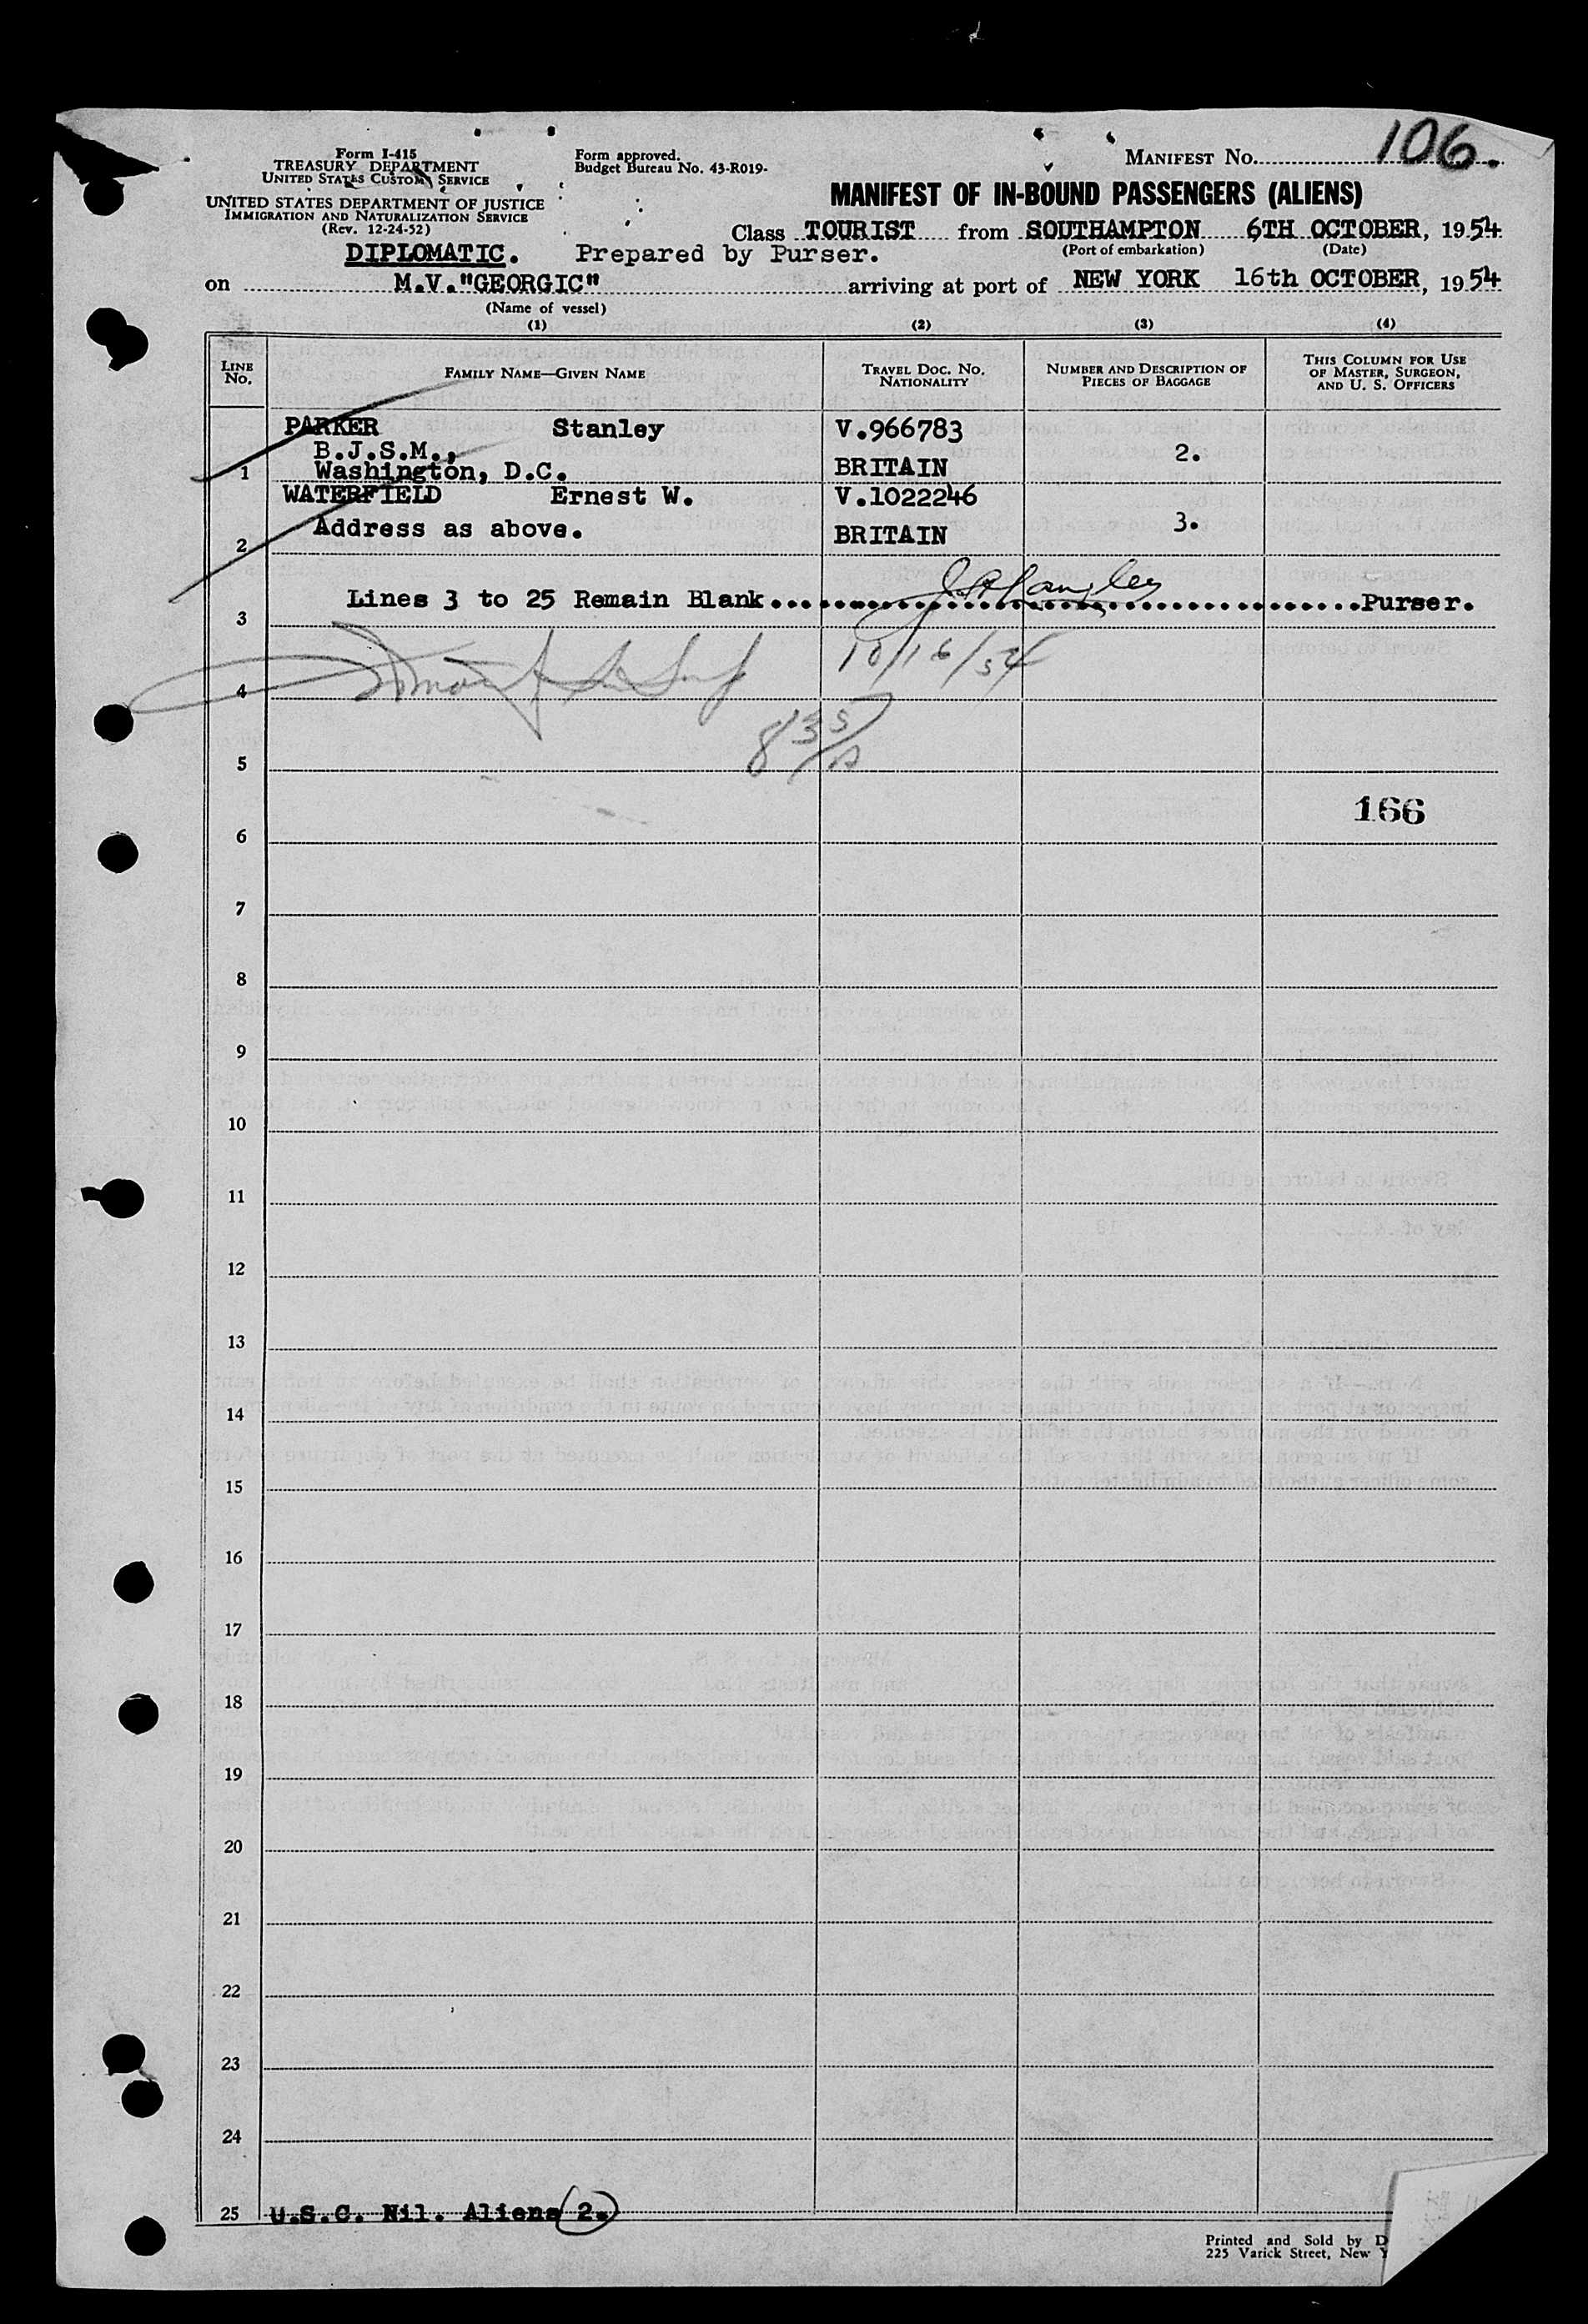 Form I-415
TREASURY DEPARTMENT
UNITED STATES CUSTOMS SERVICE
UNITED STATES DEPARTMENT OF JUSTICE
IMMIGRATION AND NATURALIZATION SERVICE
(Rev. 12-24-52)
Form approved.
Budget Bureau No. 43-R019-
MANIFEST No. 106.
MANIFEST OF IN-BOUND PASSENGERS (ALIENS)
Class TOURIST from SOUTHAMPTON 6TH OCTOBER, 1954
(Port of embarkation) (Date)
DIPLOMATIC. Prepared by Purser.
on M.V."GEORGIC" arriving at port of NEW YORK 16th OCTOBER, 1954
(Name of vessel)
(1) (2) (3) (4)
LINE No. FAMILY NAME—GIVEN NAME TRAVEL DOC. No. NATIONALITY NUMBER AND DESCRIPTION OF PIECES OF BAGGAGE THIS COLUMN FOR USE OF MASTER, SURGEON, AND U. S. OFFICERS
PARKER Stanley V.966783
B.J.S.M., 2.
1 Washington, D.C. BRITAIN
WATERFIELD Ernest W. V.1022246
Address as above. 3.
2 BRITAIN
Lines 3 to 25 Remain Blank Purser.
3
10/16/54
4
5
166
6
7
8
9
10
11
12
13
14
15
16
17
18
19
20
21
22
23
24
25 U.S.C. Nil. Aliens 2.
Printed and Sold by D
225 Varick Street, New Y